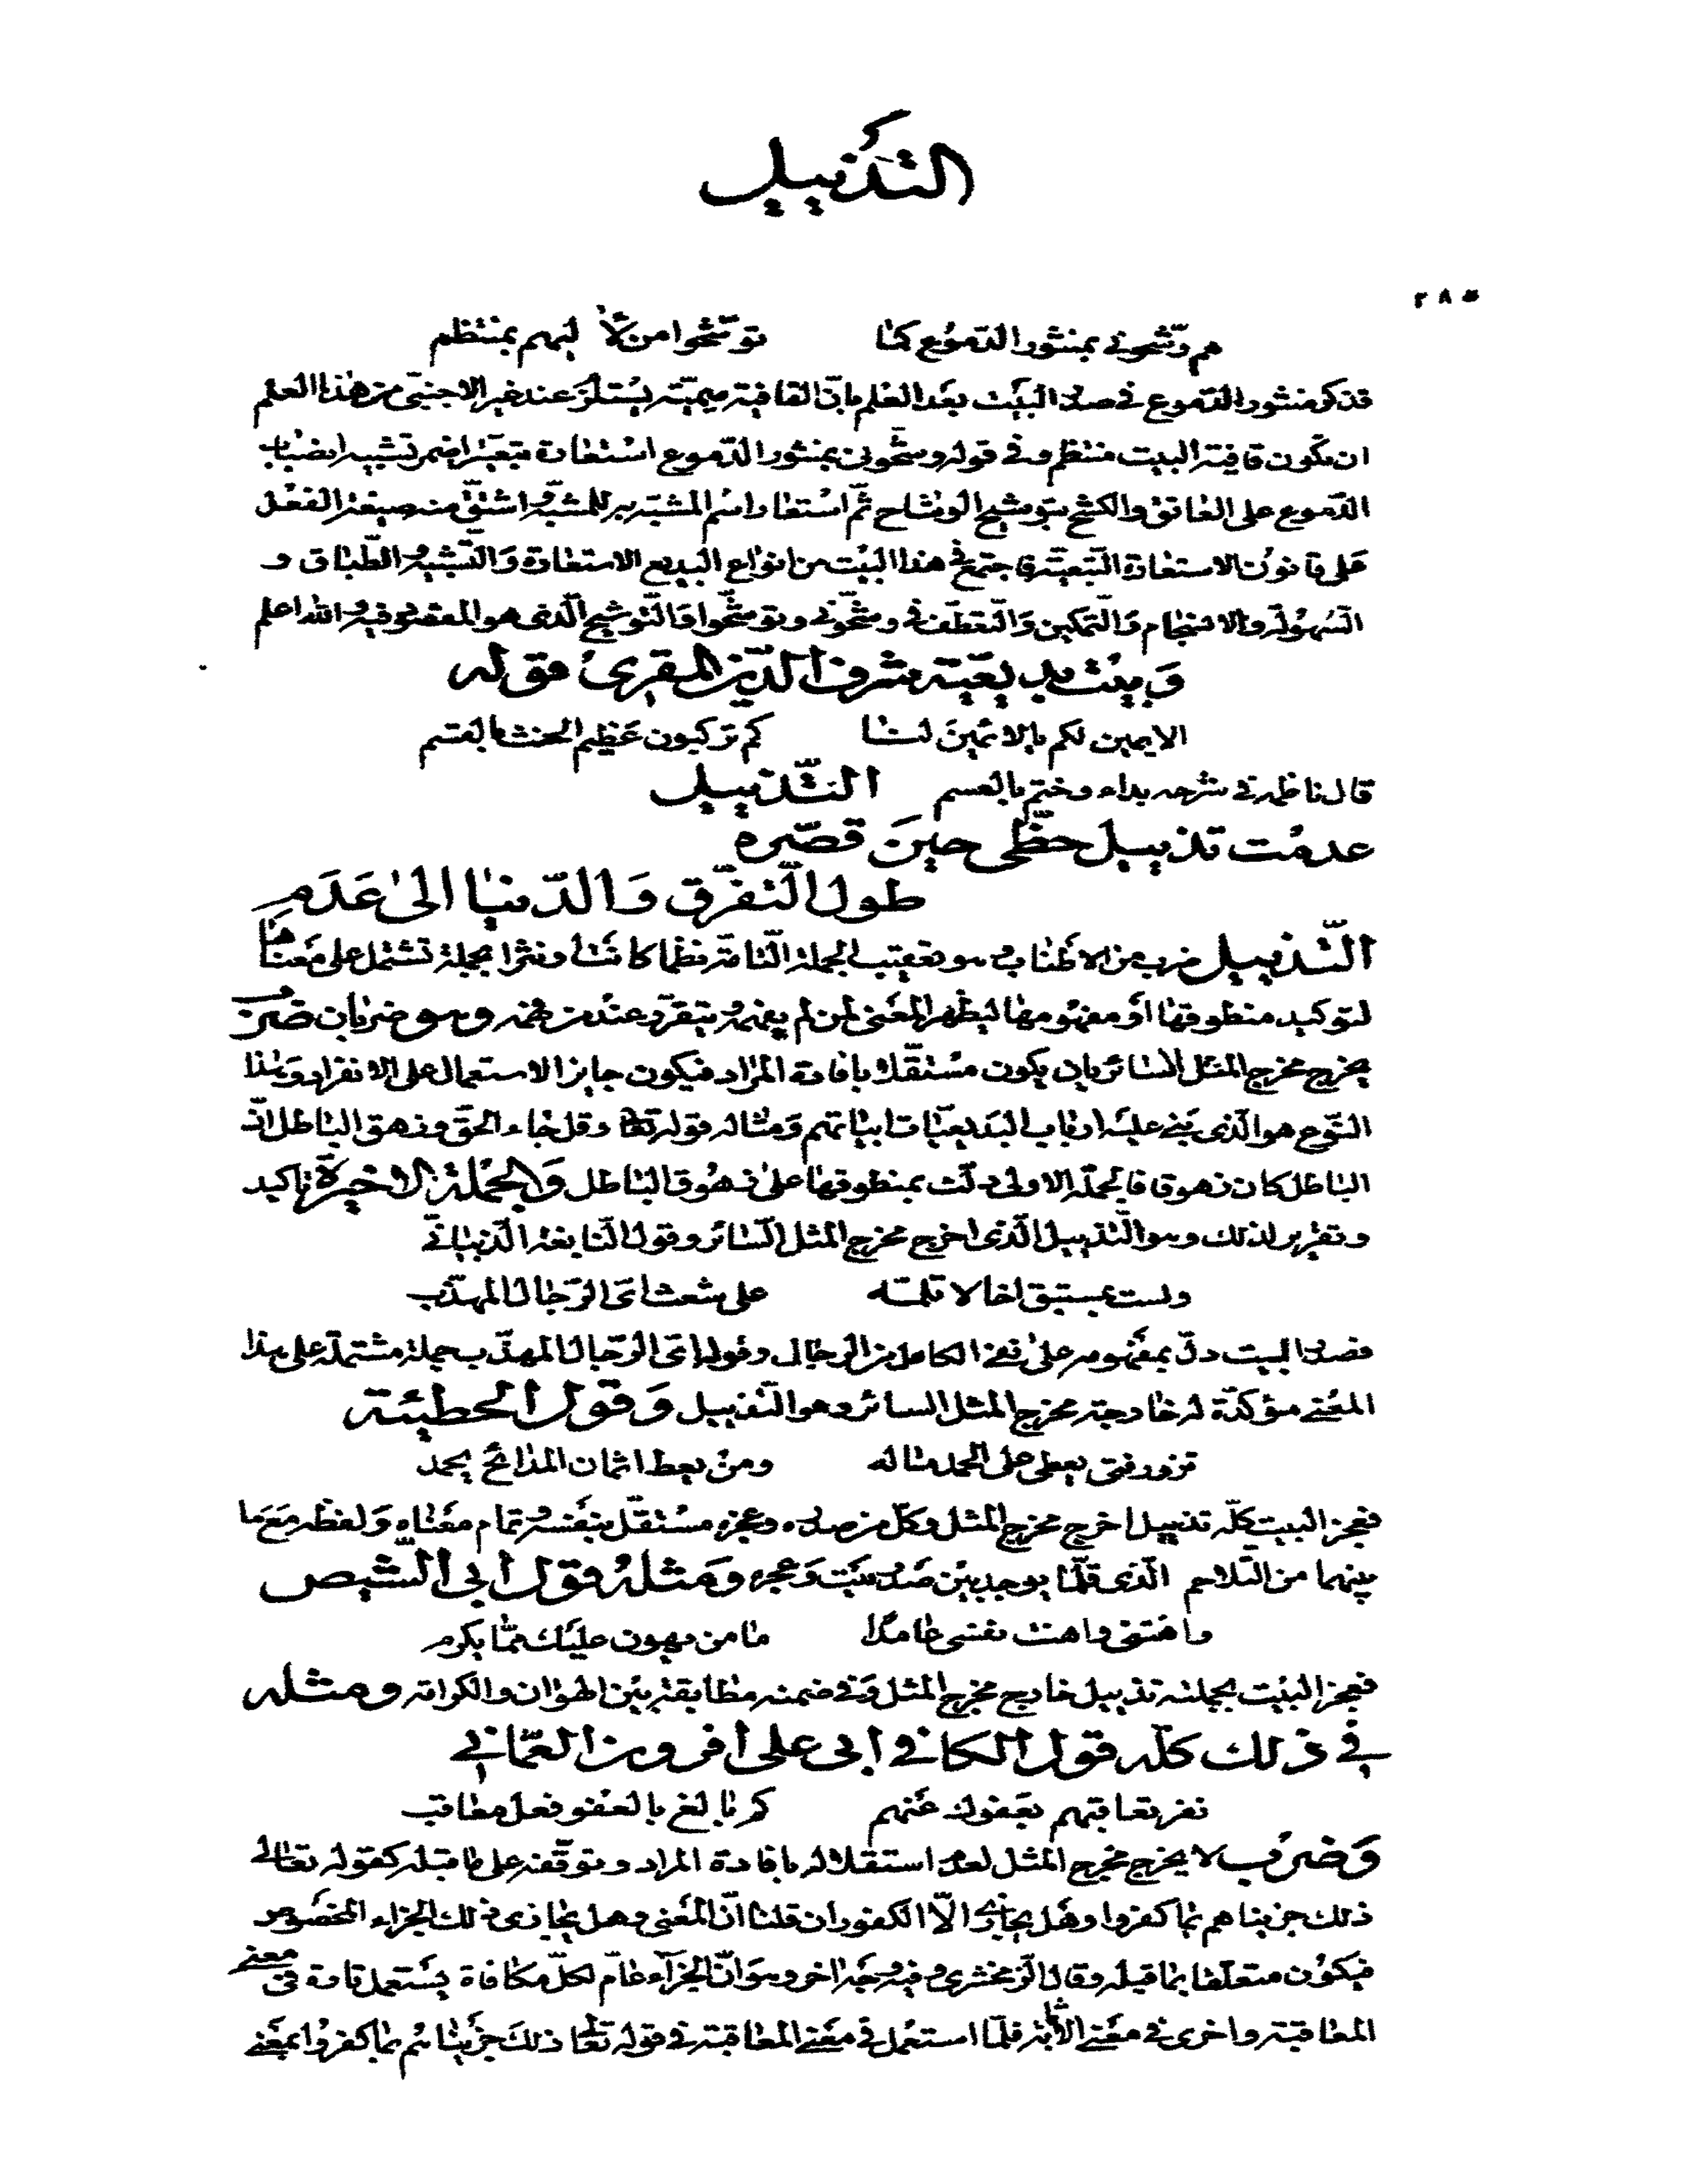 التذييل
٢٨٥
هم وشّحوني بمنثور الدّموع كما توشّحوا من لئالهم بمنتظم
فذكر منثور الدّموع في صدر البيت بعد العلم بانّ القافية ميميّة يستلزم عند غير الاجنبيّ من هذا العلم
ان تكون قافية البيت منتظم وفي قوله وشّحوني بمنثور الدّموع استعارة تبعيّة اضمر تشبيه انصباب
الدّموع على العاتق والكشح بتوشيح الوشاح ثمّ استعار اسم المشبّه به للمشبّه واشتقّ منه صيغة الفعل
على قانون الاستعارة التّبعيّة فاجتمع في هذا البيت من انواع البديع الاستعارة والتّشبيه والطّباق و
السّهولة والانسجام والتّمكين والتّعطّف في وشّحوني وتوشّحوا والتّوشيح الّذي هو المقصود فيه والله اعلم
وبيت بديعيّة شرف الدّين المقري قوله
الا يمين لكم بالا ئمين لنا كم تركبون عظيم الحنث بالقسم
قال ناظمه في شرحه بداء وختم بالقسم التّذييل
عدمت تذييل حظّي حين قصّره
طول التّفرّق والدّنيا الى عدم
التّذييل ضرب من الاطناب وهو تعقيب الجملة التّامّة نظما كانت او نثرا بجملة تشتمل على معناها
لتوكيد منطوقها أو مفهومها ليظهر المعنى لمن لم يفهمه ويتقرّر عند من فهمه وهو ضربان ضرب
يخرج مخرج المثل السائر بان يكون مستقلا بافادة المراد فيكون جايز الاستعمال على الانفراد وهذا
النّوع هو الّذي بنى عليه ارباب البديعيّات ابياتهم ومثاله قوله تعالى وقل جاء الحقّ وزهق الباطل انّ
الباطل كان زهوقا فالجملة الاولى دلّت بمنطوقها على زهوق الباطل والجملة الاخيرة تاكيد
وتقرير لذلك وهو التّذييل الّذي اخرج مخرج المثل السّائر وقول النّابغة الذّبياني
ولست بمستبق اخا لا تلمّه على شعث اىّ الرّجال المهذّب
فصدر البيت دلّ بمفهومه على نفي الكامل من الرجال وقوله اىّ الرّجال المهذّب جملة مشتملة على هذا
المعنى مؤكدّة له خارجة مخرج المثل السائر وهو التّذييل وقول الحطيئة
تزور فتى يعطي على الحمد ماله ومن يعط اثمان المدائح يحمد
فعجز البيت كلّه تذييل اخرج مخرج المثل وكلّ من صدره وعجزه مستقلّ بنفسه وتمام معناه ولفظه مع ما
بينهما من التلاحم الّذي قلّما يوجد بين صدر بيت وعجزه ومثله قول ابي الشّيص
واهنتني واهنت نفسي عامدا ما من يهون عليك ممّا يكرم
فعجز البيت بجملته تذييل خارج مخرج المثل وفي ضمنه مطابقة بين الهوان والكرامة ومثله
في ذلك كلّه قول الكافي ابي علي افرون العمّاني
نفر تعاقبهم بعفوك عنهم كم بالغ بالعفو فعل معاقب
وضرب لا يخرج مخرج المثل لعدم استقلاله بافادة المراد وتوقّفه على ما قبله كقوله تعالى
ذلك جزيناهم بما كفروا وهل يجازى الّا الكفور ان قلنا انّ المعنى وهل يجازى ذلك الجزاء المخصوص
فيكون متعلّقا بما قبله وقال الزّمخشري وفيه وجه اخر وهو انّ الجزاء عامّ لكلّ مكافاة يستعمل تارة في معنى
المعاقبة واخرى في معنى الاثابة فلمّا استعمل في معنى المعاقبة في قوله تعالى ذلك جزيناهم بما كفروا بمعنى